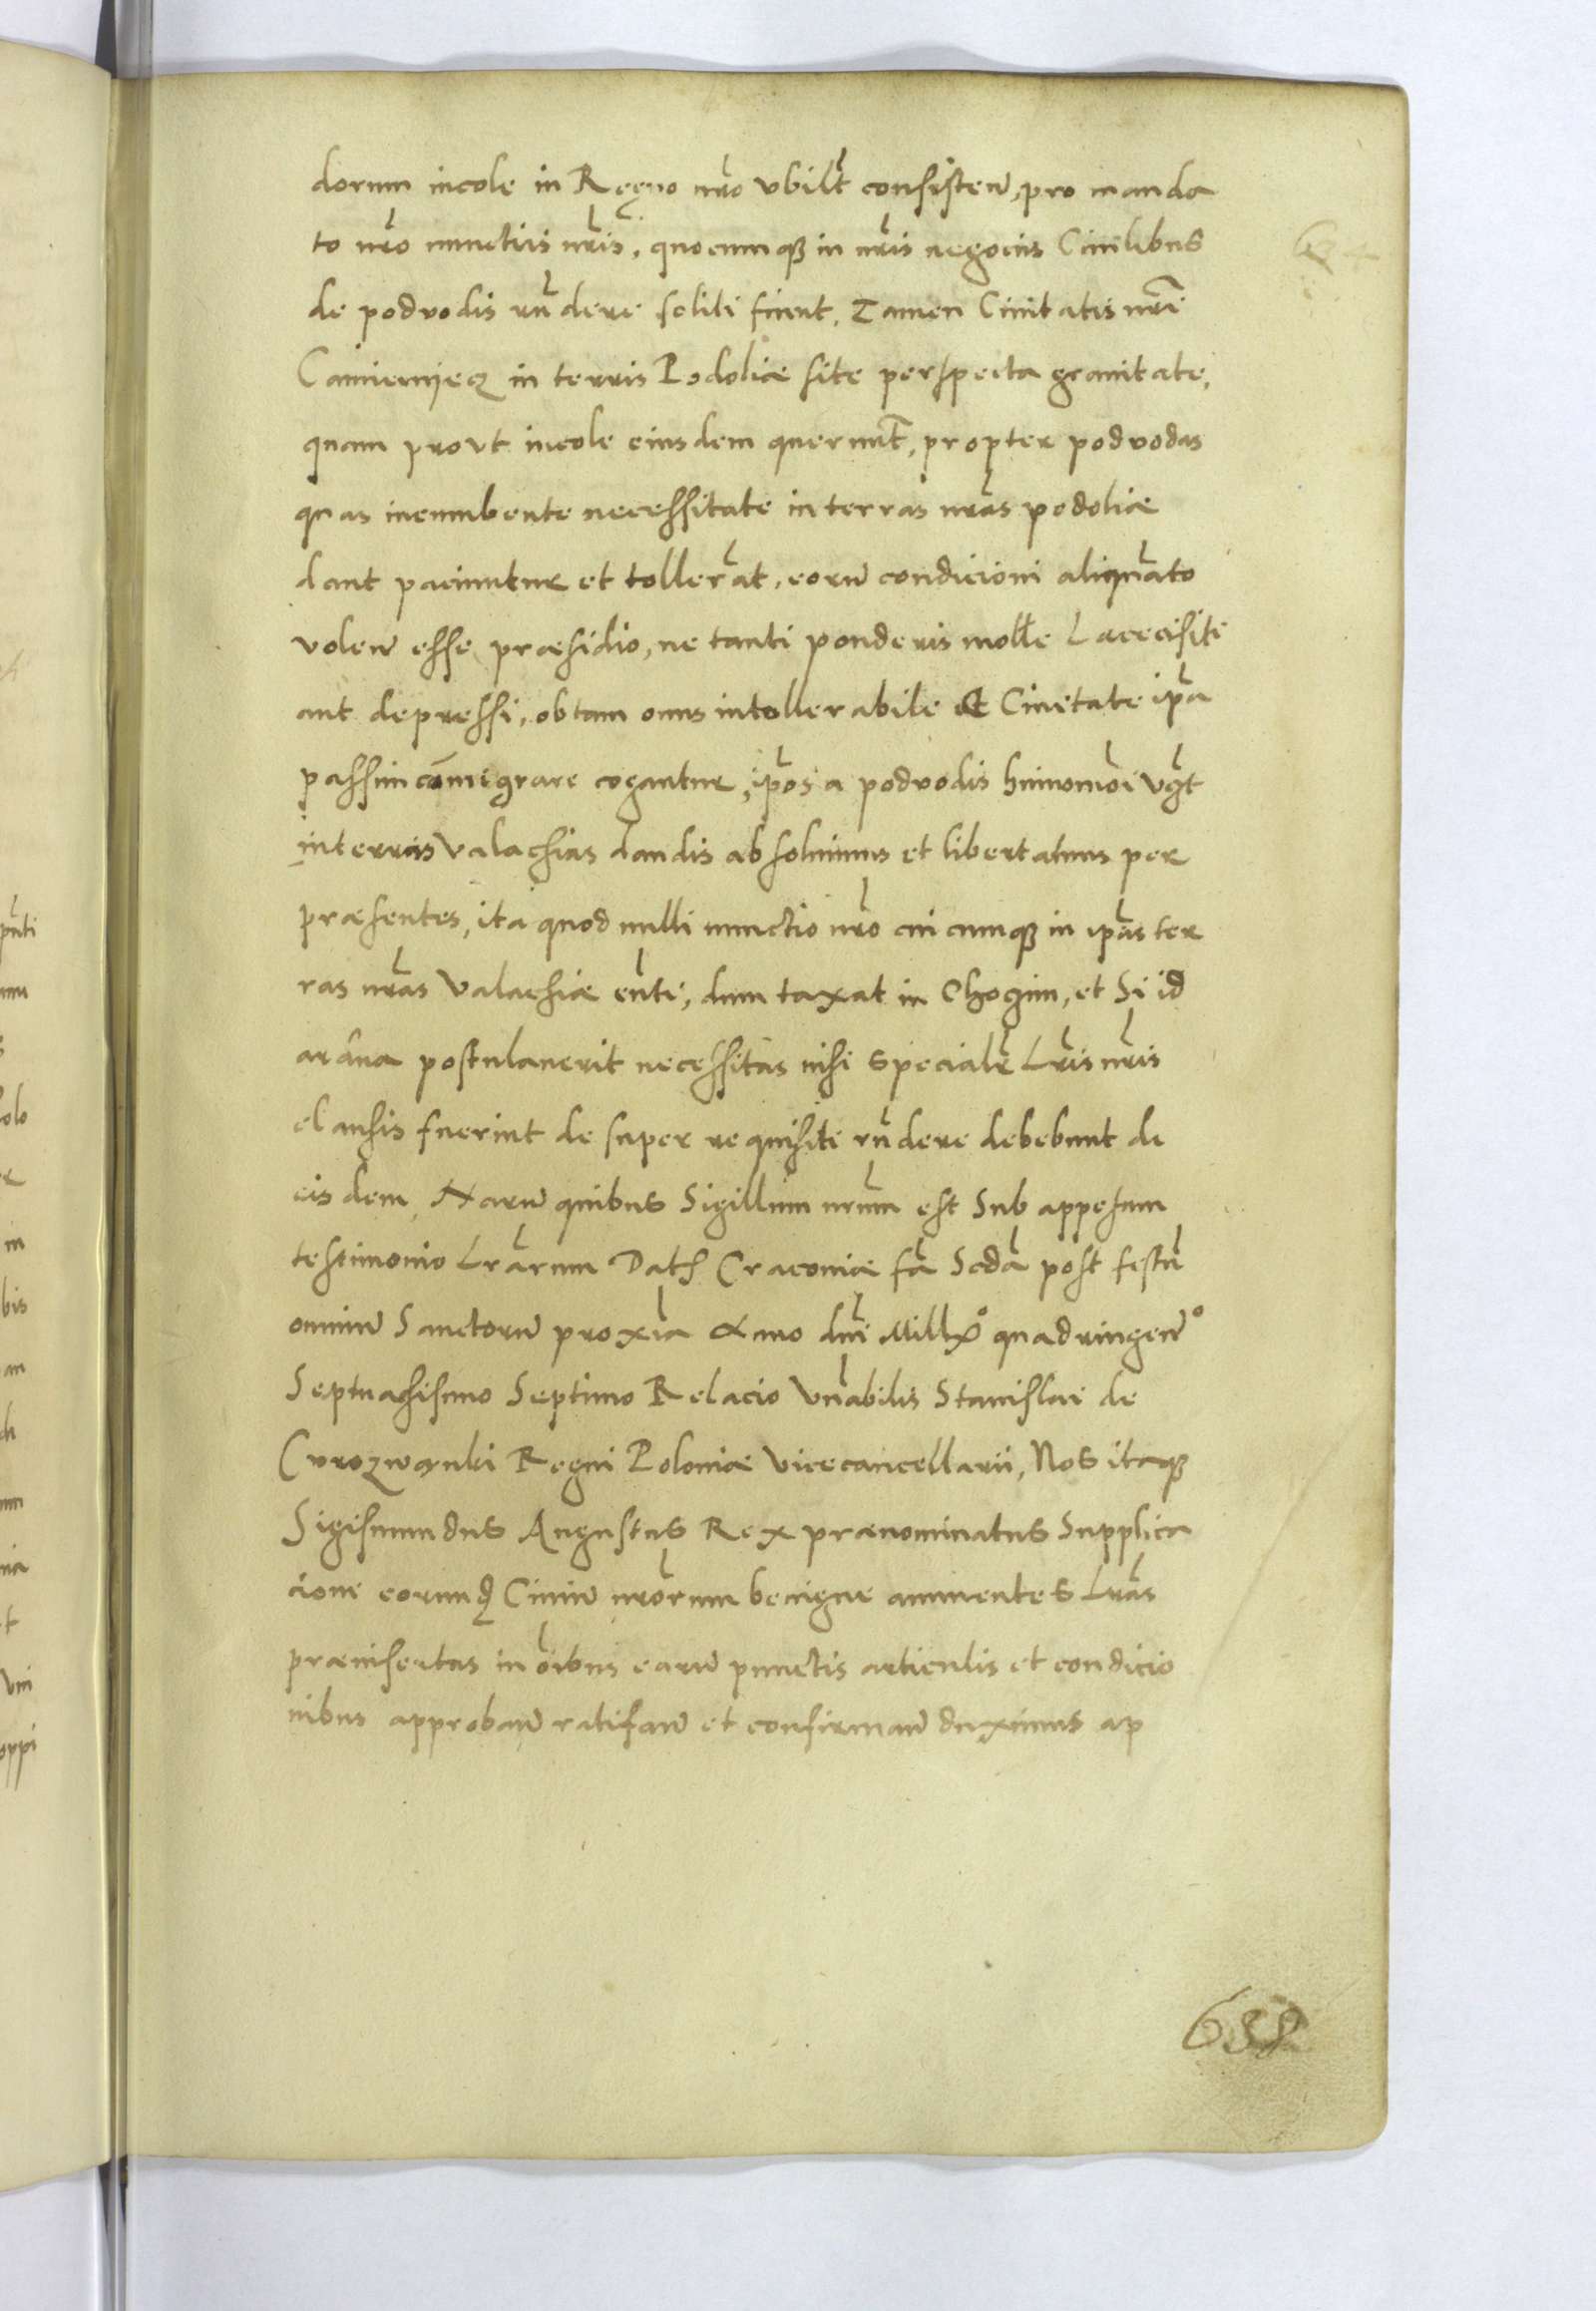 dorum incole in Regno nr̃o vbilt̃ consisten̄, pro manda
to nr̃o nunctiis nr̃is, quocumqȝ in nr̃is negociis Ciuilibus
de podvodis rñdere soliti fuent, Tamen Ciuitatis nrẽ
Camienyecz in terris Podoliæ site perspecta grauitate,
quam provt incole eiusdem querunt̃, propter podvodas
quas incumbente necessitate in terras nr̃as podoliæ
dant paciuntur et tollerãt, eorũ condicioni aliquãto
volen̄ esse præsidio, ne tanti ponderis molle Lacecisiti
aut depressi, ob tam onus intollerabile de Ciuitate ip̃a
passim cõmigrare cogantur, ip̃os a podvodis huiusmõi vg̃t
in terras Valachias dandis absoluimus et libertamus per
præsentes, ita quod nulli nunctio nr̃o cuicumqȝ in ip̃as ter
ras nr̃as Valachiæ eun̄ti, dum taxat in Chogim, et Si id
ardua postulauerit necessitas nisi specialr̃ Lr̃is nr̃is
clausis fuerint de super requisiti rñdere debebunt de
eisdem, Harũ quibus Sigillum nrũm est Sub appesum
testimonio Lr̃arum Datȝ Cracouiæ fã Scdã post festũ
omniũ Sanctorũ proxĩa Anno dñi Millxº quadringenº
Septuagisimo Septimo Relacio Vñabilis Stanislai de
Curozwanki Regni Poloniæ Vicecancellarii, Nos itaqȝ
Sigismundus Augustus Rex prænominatus Supplica
cioni eorund̃ Ciuiũ nr̃orum benigne annuentes Lr̃as
præinsertas in oĩbus earũ punctis articulis et condicio
nibus approban̄ ratifan̄ et confirman̄ duximus ap
638